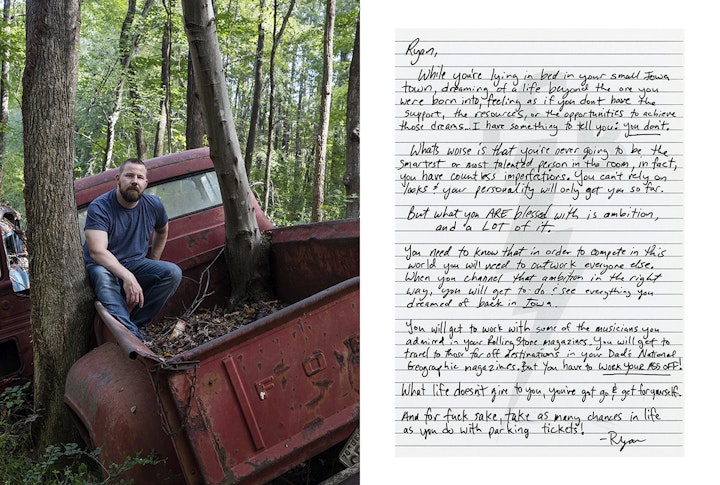 FOR
Ryan,
While you're lying in bed in your small Iowa
town, dreaming of a life beyond the one you
were born into, feeling as if you dont have the
support, the resources, or the opportunities to achieve
those dreams... I have something to tell you: You don't.
Whats worse is that you're never going to be the
smartest or most talented person in the room, in fact,
you have countless imperfections. You can't rely on
looks & your personality will only get you so far.
But what you ARE blessed with is ambition,
and a LOT of it.
You need to know that in order to compete in this
world you will need to outwork everyone else.
When you channel that ambition in the right
way, you will get to do & see everything you
dreamed of back in Iowa.
You will get to work with some of the musicians you
admired in your Rolling Stone magazines. You will get to
travel to those far off destinations in your Dad's National
Geographic magazines. But you have to WORK YOUR ASS OFF!
What life doesn't give to you, you've got go & get for yourself.
And for fuck sake, take as many chances in life
as you do with parking tickets!
-Ryan